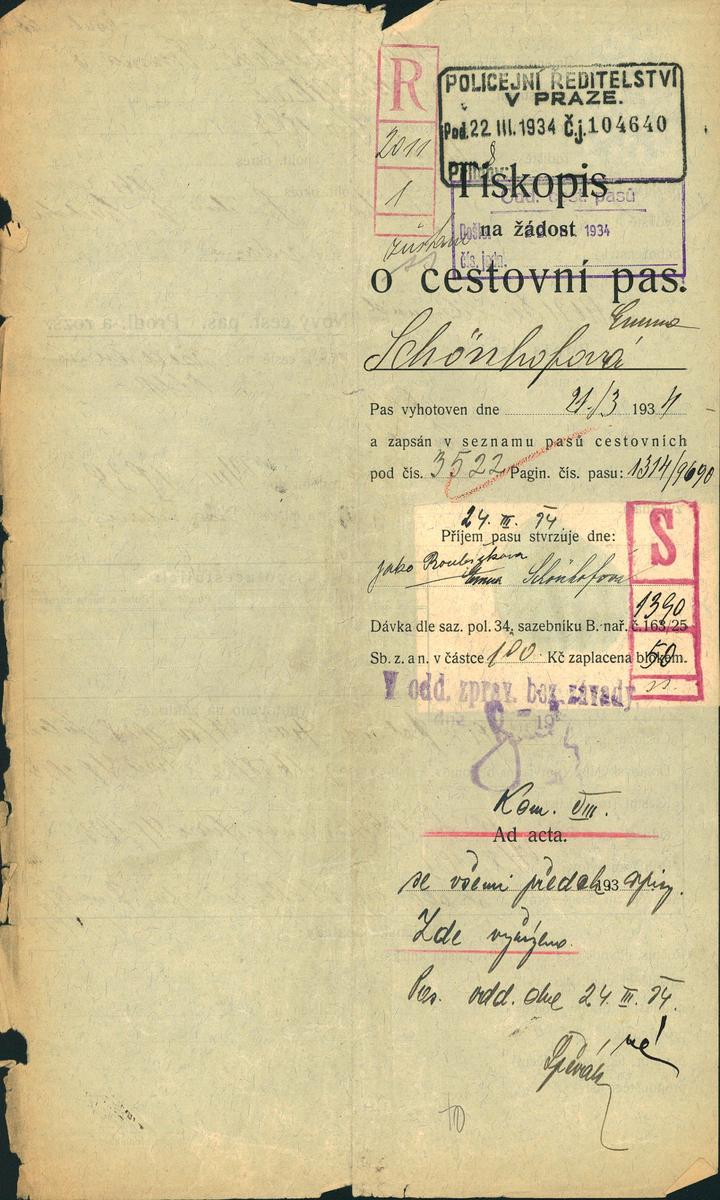 R
2011
1
POLICEJNÍ ŘEDITELSTVÍ
V PRAZE.
Pod. 22.III.1934 Č.j. 104640
Přílohy: 8
Tiskopis
Odd. cest. pasů
na žádost
Došlo: 1934
čís. jedn.
o cestovní pas.
Emma
Schönhofová
Pas vyhotoven dne 21/3 1934
a zapsán v seznamu pasů cestovních
pod čís. 3522 Pagin. čís. pasu: 1314/9690
24. III. 34
Příjem pasu stvrzuje dne:
jako Roubíčkova
Emma Schönhofová
S
1390
50
Dávka dle saz. pol. 34, sazebníku B. nař. č. 163/25
Sb. z. a n. v částce 100 Kč zaplacena blokem.
V odd. zpráv. bez závady
dne 19
Kom. VIII.
Ad acta.
se všemi předch. spisy.
193
Zde vyřízeno.
Pas. odd. dne 24. III. 34.